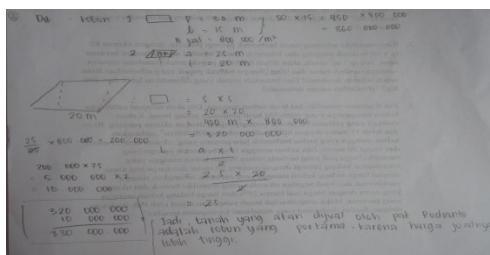 Da kebun 1 P = 30 m 30 x 15 = 450 x 800 000
l = 15 m = 360 000 000
800 000 /m²
2 a = 25 m
t = 20 m
20 m
= s x s
= 20 x 20
= 400 m x 800 000
= 320 000 000
x 800 000 = 200 000
L = a x t
2
200 000 x 25
= 5 000 000 x 2
= 10 000 000
= 2,5 x 20
2
= 25
320 000 000
10 000 000
330 000 000
Jadi, tanah yang akan dijual oleh pak Rudianto
adalah kebun yang pertama. karena harga jualnya
lebih tinggi.